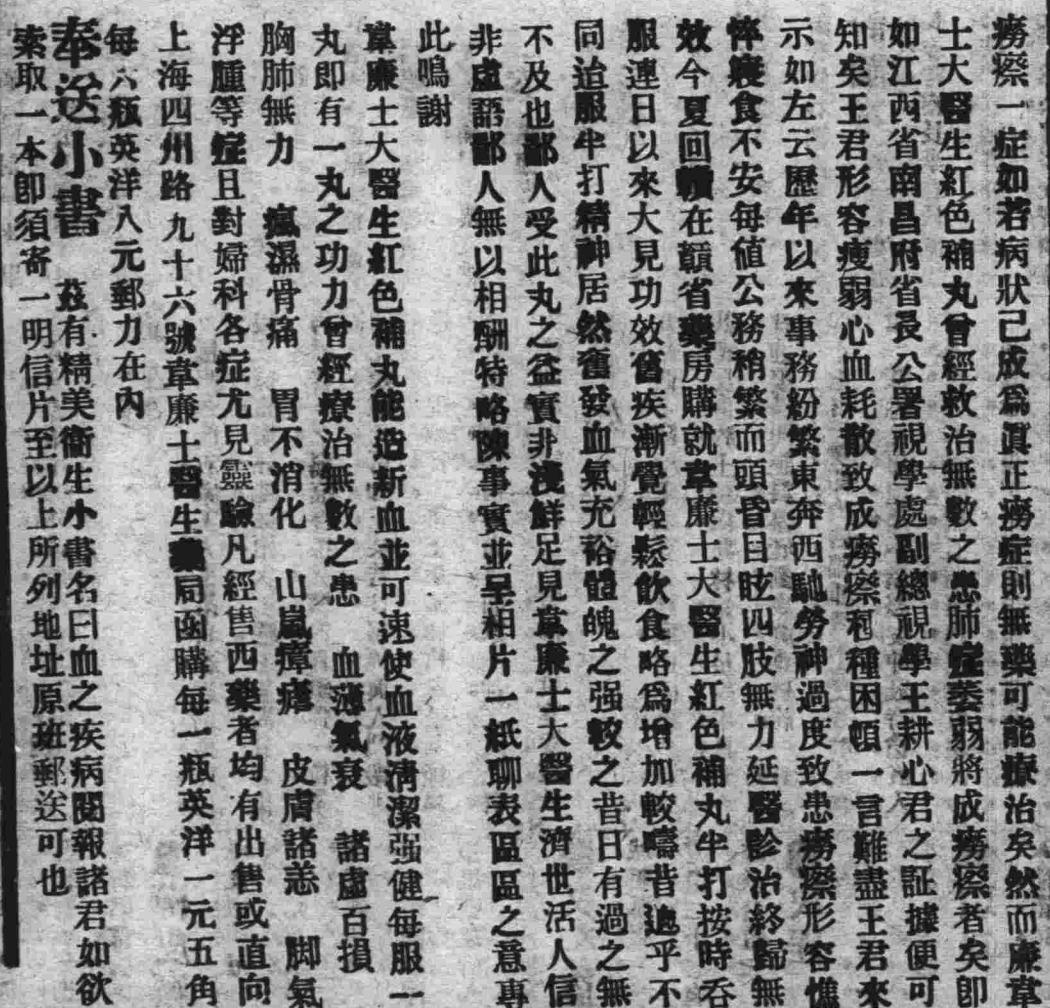 癆瘵一症如若病狀已成爲眞正癆症則無藥可能療治矣然而廉韋
士大醫生紅色補丸曾經救治無數之患肺症萎弱將成癆瘵者矣即
如江西省南昌府省長公署視學處副總視學王耕心君之証據便可
知矣王君形容瘦弱心血耗散致成癆瘵種種困頓一言難盡王君來
示如左云歷年以來事務紛繁東奔西馳勞神過度致患癆瘵形容憔
悴寢食不安每值公務稍繁而頭昏目眩四肢無力延醫診治終歸無
效今夏回贛在贛省藥房購就韋廉士大醫生紅色補丸半打按時吞
服連日以來大見功效舊疾漸覺輕鬆飲食略爲增加較疇昔逈乎不
同迨服半打精神居然舊發血氣充裕體魄之强較之昔日有過之無
不及也鄙人受此丸之益實非淺鮮足見韋廉士大醫生濟世活人信
非虛語鄙人無以相酬特略陳事實並呈相片一紙聊表區區之意專
此鳴謝
韋廉士大醫生紅色補丸能造新血並可速使血液淸潔强健每服一
丸即有一丸之功力曾經療治無數之患 血薄氣衰 諸虛百損
胸肺無力 瘋濕骨痛 胃不消化 山嵐瘴瘧 皮膚諸恙 脚氣
浮腫等症且對婦科各症尤見靈驗凡經售西藥者均有出售或直向
上海四川路九十六號韋廉士醫生藥局函購每一瓶英洋一元五角
每六瓶英洋八元郵力在內
奉送小書 茲有精美衞生小書名曰血之疾病閱報諸君如欲
索取一本即須寄一明信片至以上所列地址原班郵送可也